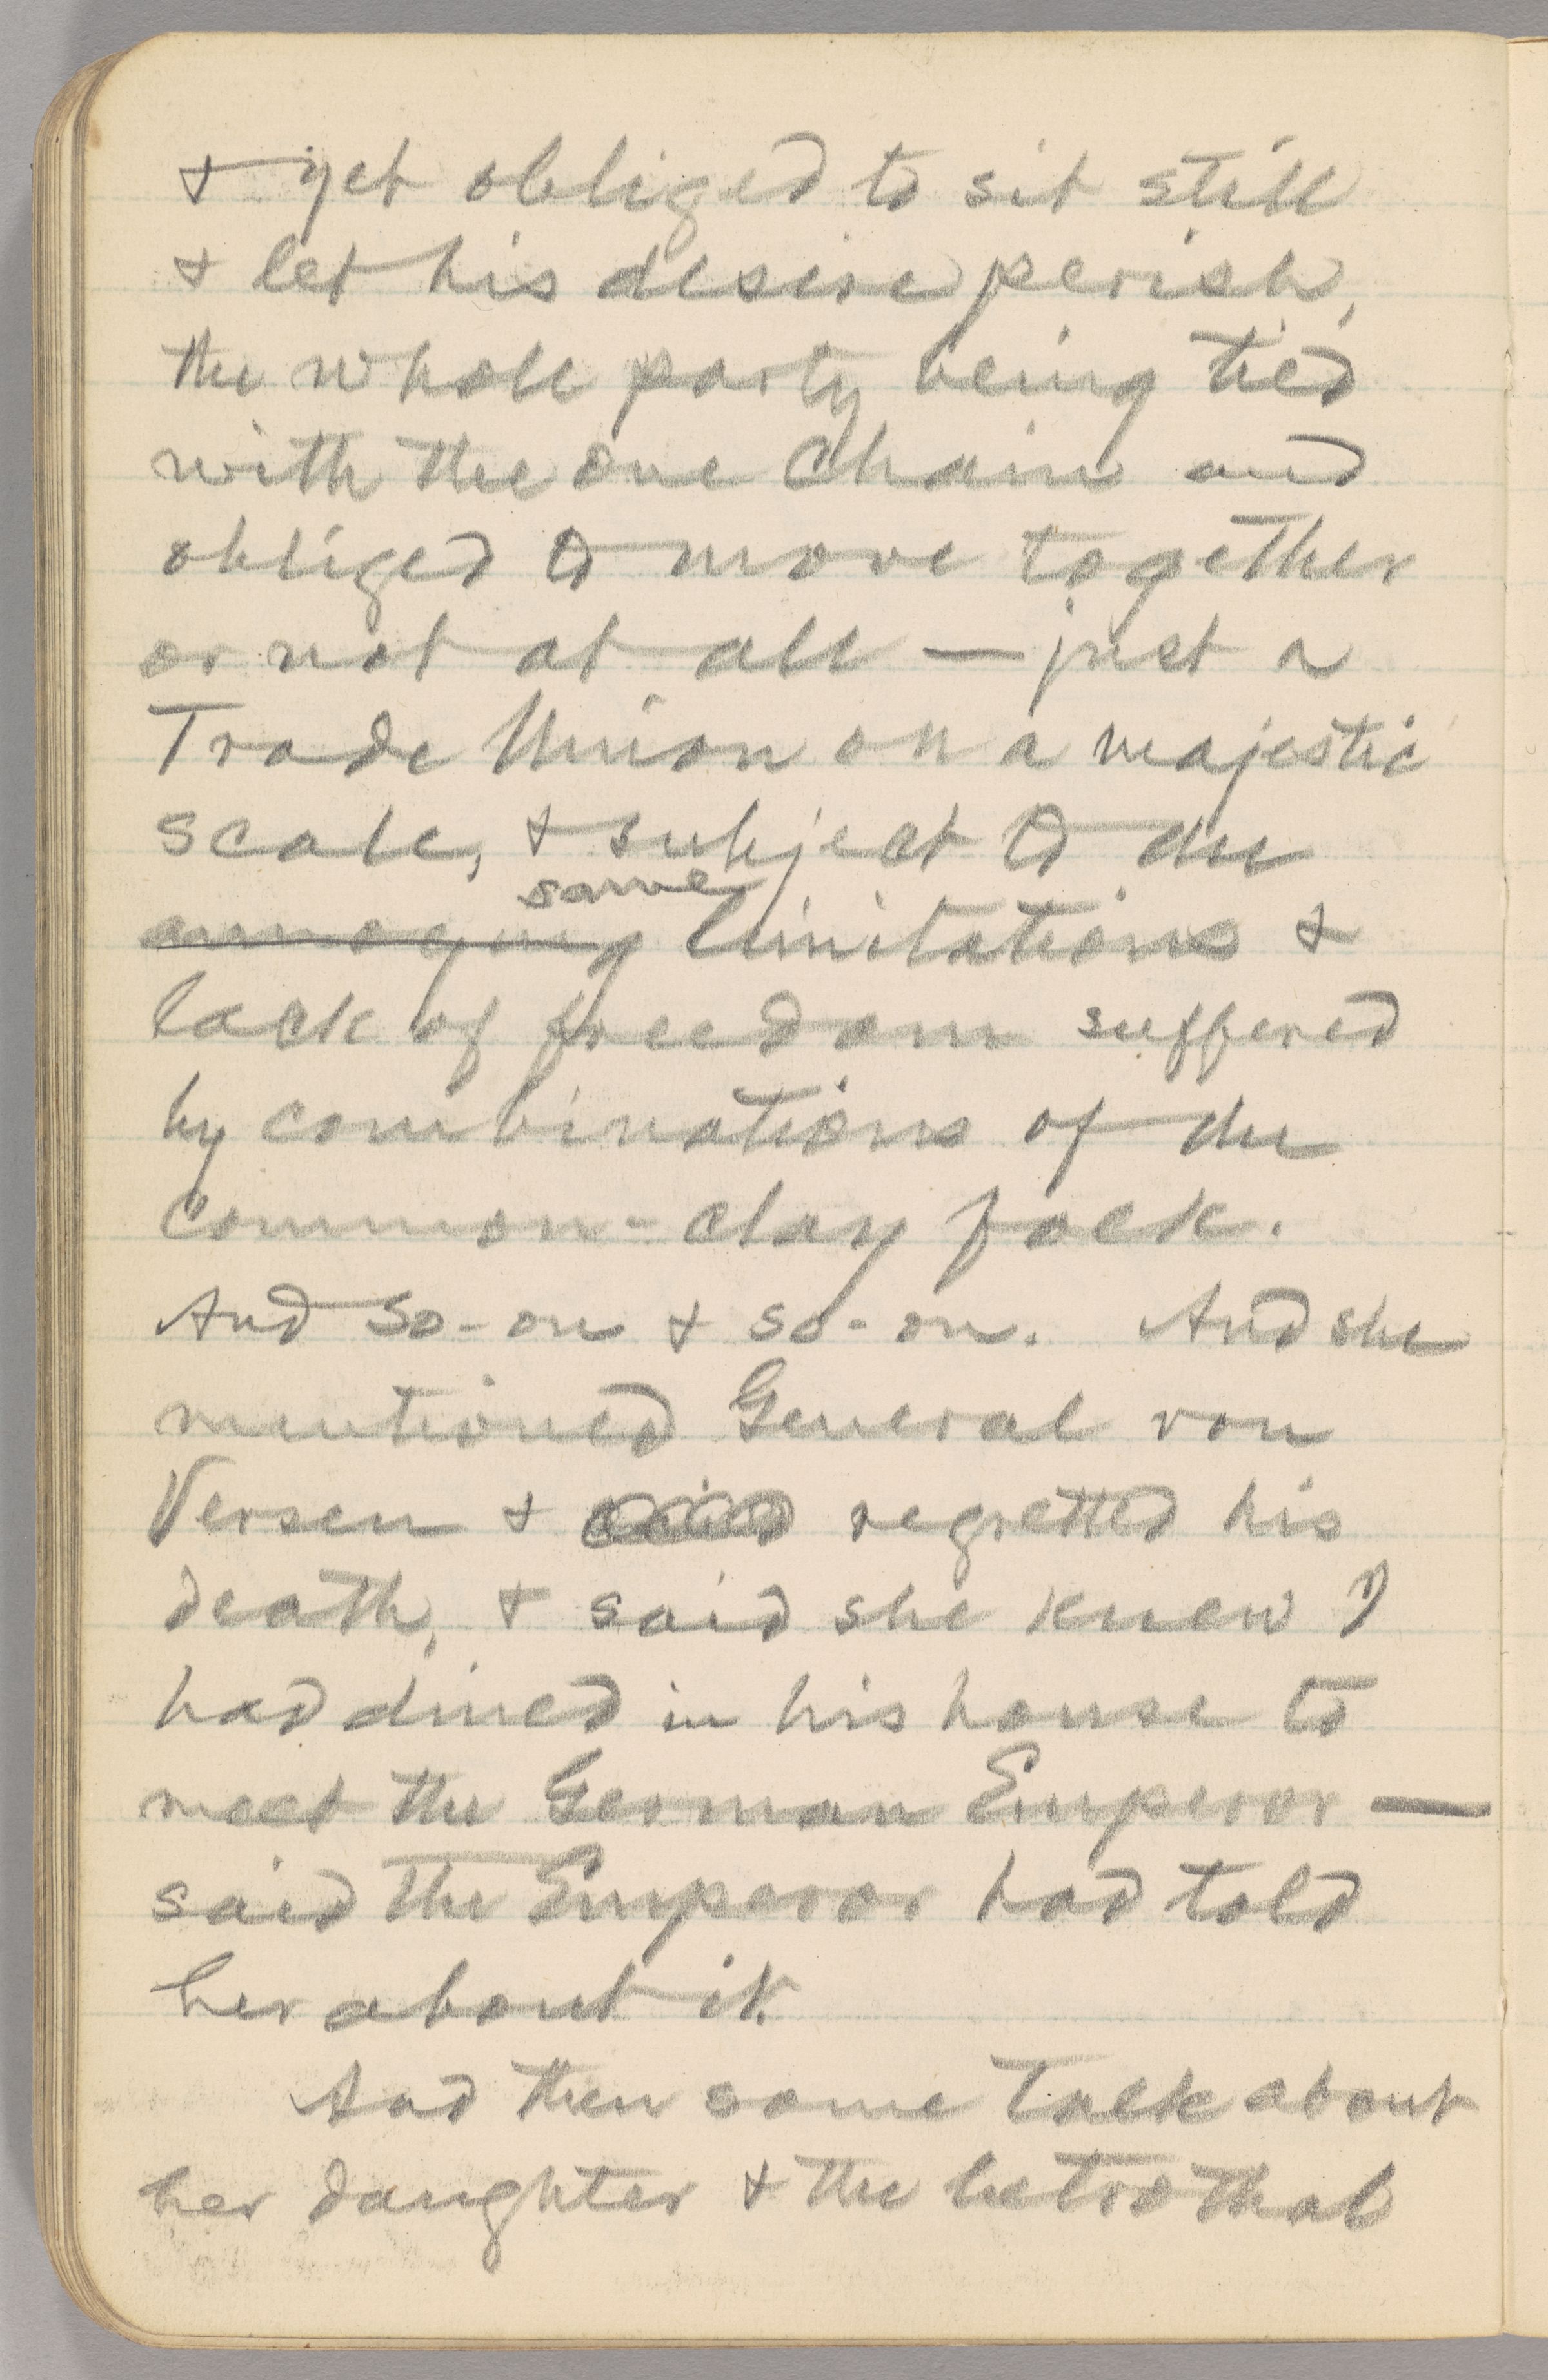 & yet obliged to sit still
& let his desire perish,
the whole party being tied
with the one chain and
obliged to move together
or not at all — just a
Trade Union on a majestic
scale, & subject to the
same
annoying limitations &
lack of freedom suffered
by combinations of the
common-clay folk.
And so-on & so-on. And she
mentioned General von
Versen & regretted his
death, & said she knew I
had dined in his house to
meet the German Emperor —
said the Emperor had told
her about it.
And then some talk about
her daughter & the betrothal